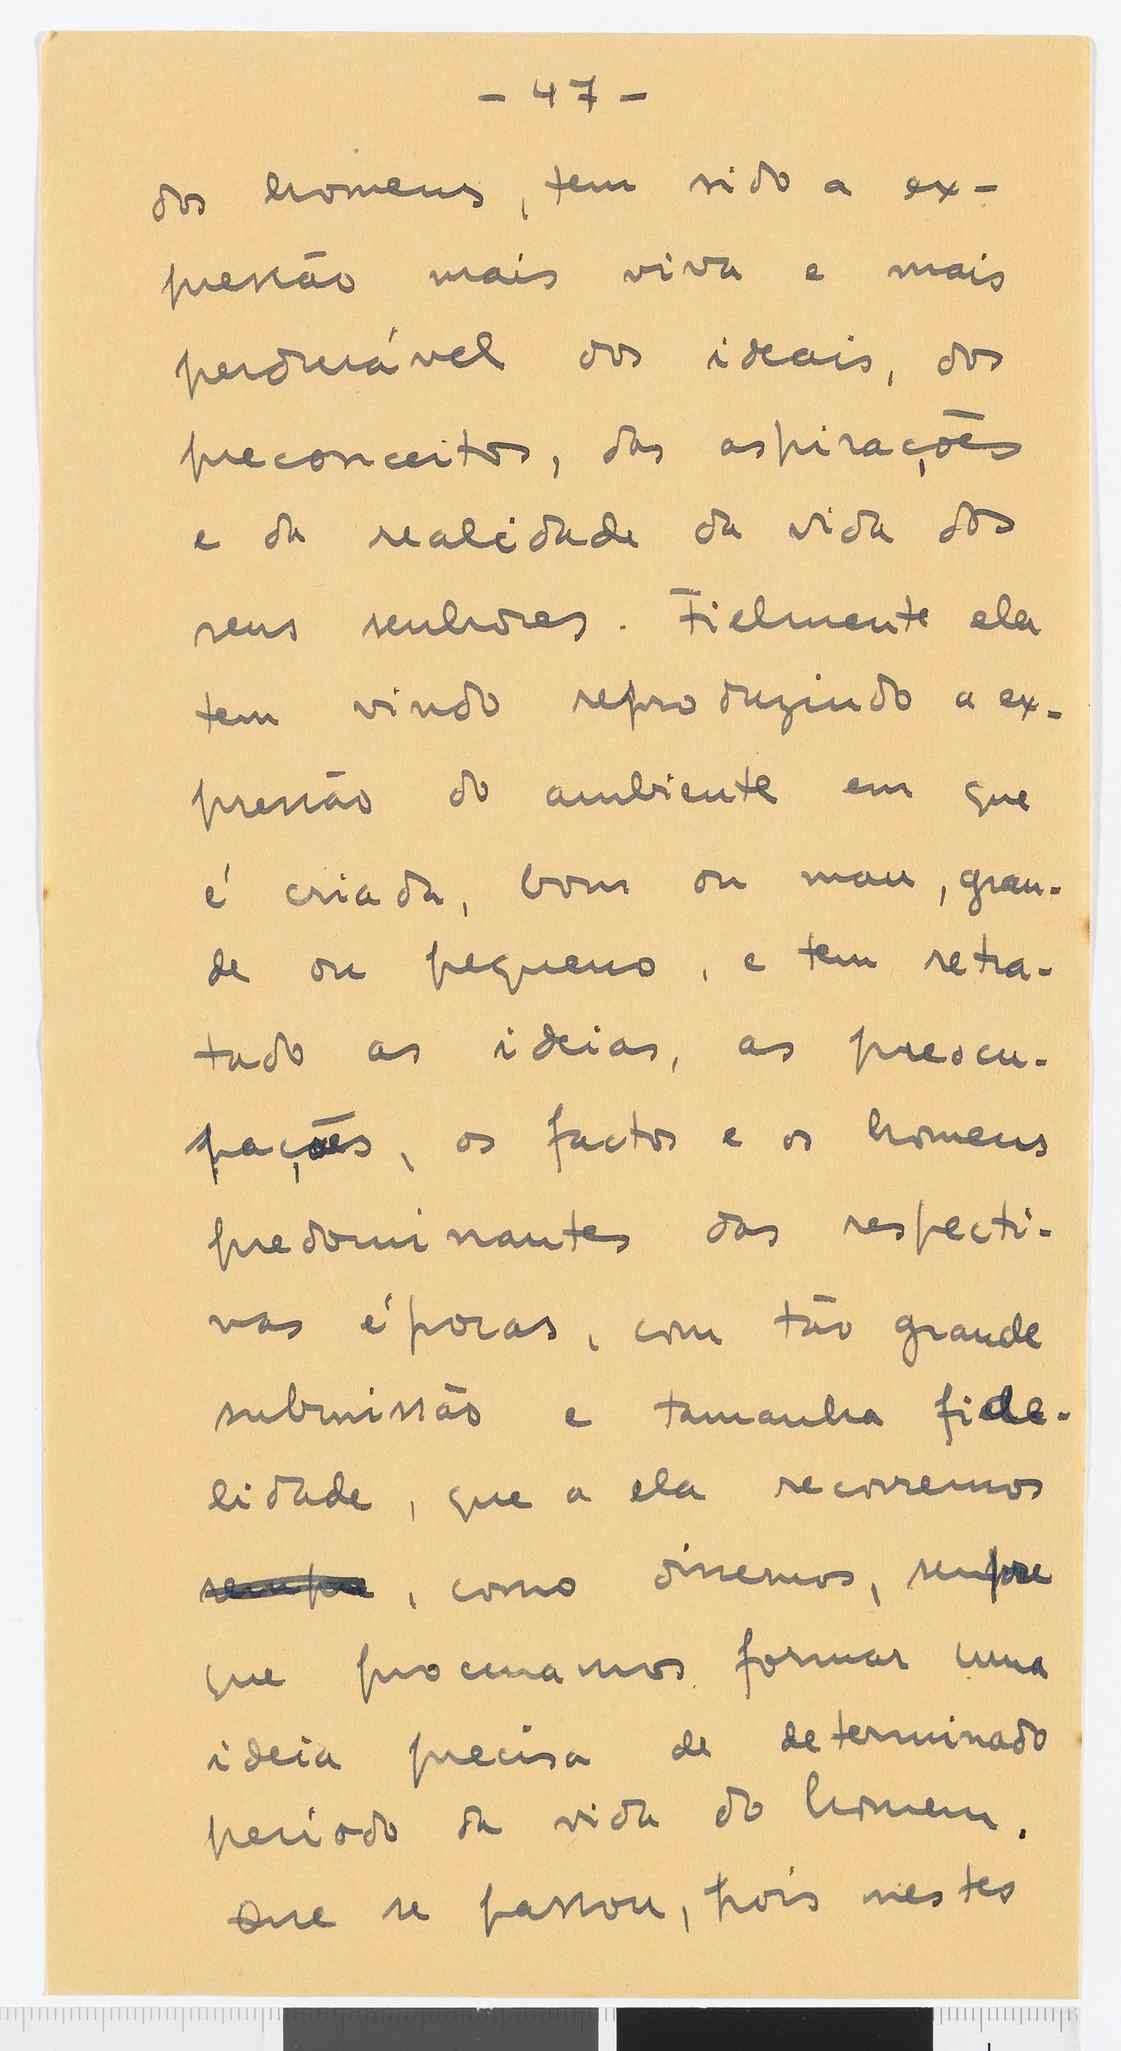 - 47 -
dos homens, tem sido a ex-
pressão mais viva e mais
perdurável dos ideais, dos
preconceitos, das aspirações
e da realidade da vida dos
seus senhores. Fielmente ela
tem vindo reproduzindo a ex-
pressão do ambiente em que
é criada, bom ou mau, gran-
de ou pequeno, e tem retra-
tado as ideias, as preocu-
pações, os factos e os homens
predominantes das respecti-
vas épocas, com tão grande
submissão e tamanha fide-
lidade, que a ela recorremos
sempre, como dissemos, sempre
que procuramos formar uma
ideia precisa de determinado
período da vida do homem.
Que se passou, pois nestes